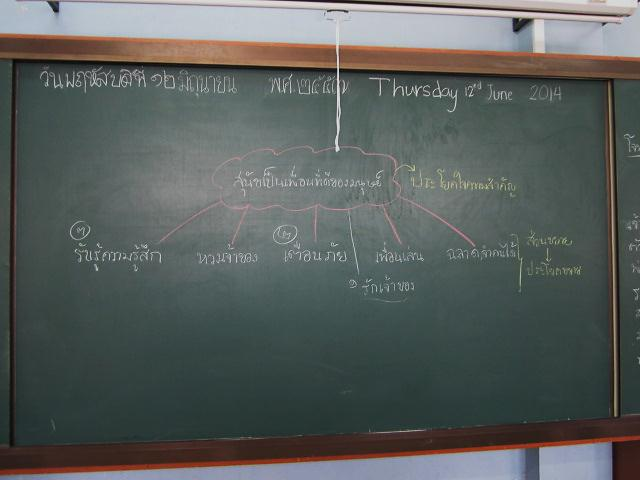 วันพฤหัสบดีที่ ๑๒ มิถุนายน พ.ศ.๒๕๕๗ Thursday 12nd June 2014
สุนัขเป็นเพื่อนที่ดีของมนุษย์ ประโยคใจความสำคัญ
๓ รับรู้ความรู้สึก หวงเจ้าของ ๒ เตือนภัย เพื่อนเล่น ฉลาดจำคนได้ ส่วนขยาย
ประโยคขยาย
๑ รักเจ้าของ